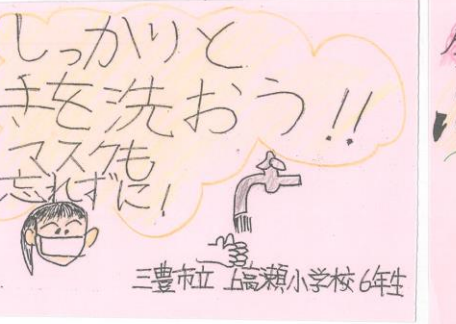 しっかりと
手を洗おう!!
マスクも
忘れずに!
三豊市立 上高瀬小学校6年生